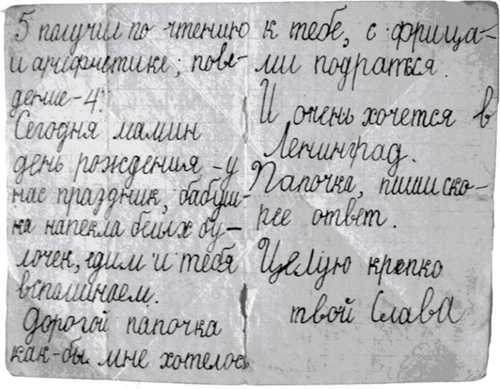 5 получил по чтению
и арифметике; пове-
дение-4.
Сегодня мамин
день рождения, -у
нас праздник, бабуш-
ка напекла белых бу-
лочек, едим и тебя
вспоминаем.
Дорогой папочка
как-бы мне хотелось
к тебе, с фрица-
ми подраться.
И очень хочется в
Ленинград.
Папочка, пиши ско-
рее ответ.
Целую крепко
твой Слава